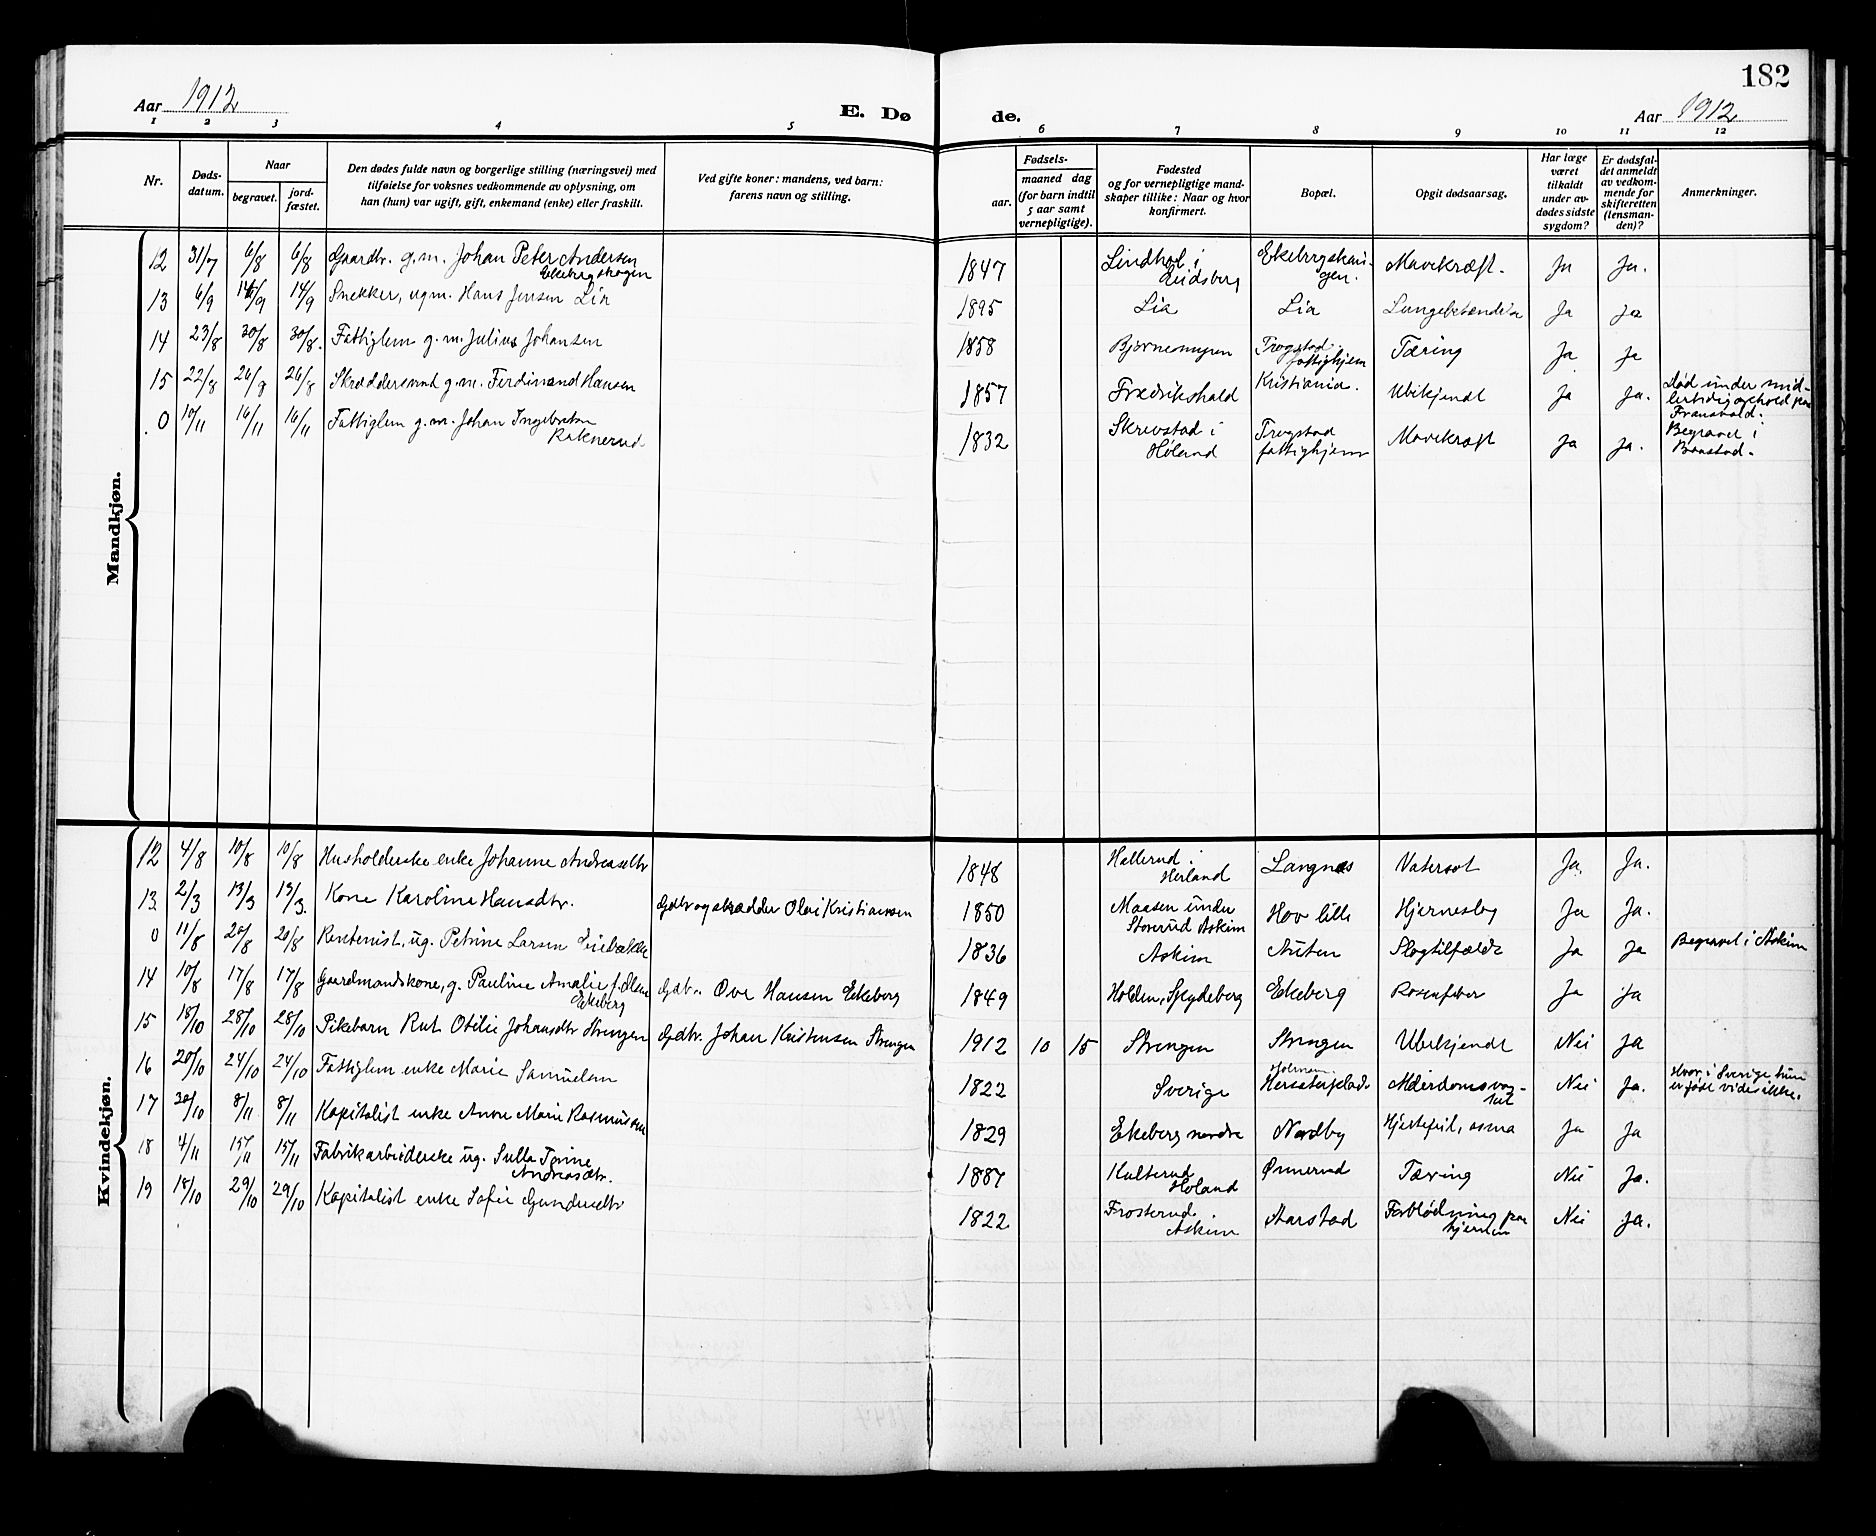 182
Aar 1912
E. Dø
de.
Aar 1912
1 2 3 4 5 6 7 8 9 10 11 12
Nr.
Døds-
datum.
Naar
begravet.
jord-
fæstet.
Den dødes fulde navn og borgerlige stilling (næringsvei) med
tilføielse for voksnes vedkommende av oplysning, om
han (hun) var ugift, gift, enkemand (enke) eller fraskilt.
Ved gifte koner: mandens, ved barn:
farens navn og stilling.
Fødsels-
aar.
maaned dag
(for barn indtil
5 aar samt
vernepligtige).
Fødested
og for vernepligtige mand-
skaper tillike: Naar og hvor
konfirmert.
Bopæl.
Opgit dødsaarsag.
Har læge
været
tilkaldt
under av-
dødes sidste
sygdom?
Er dødsfal-
det anmeldt
av vedkom-
mende for
skifteretten
(lensman-
den)?
Anmerkninger.
Mandkjøn.
12 31/7 6/8 6/8 Gaardbr. g.m. Johan Peter Andersen
Ekebergshagen
1847 Lindhol i
Eidsberg
Ja Ja.
Mavekræft.
13 6/9 14/9 14/9 Snekker, ugm. Hans Jensen Lia
1895 Lia Lia Lungebetændelse Ja ja
14 23/8 30/8 30/8. Fattiglem g.m. Julius Johansen
1858 Trøgstad
fattighjem
Tæring Ja ja
15 22/8 26/8 26/8 g.m. Ferdinand Hansen
1857 Fredrikshald Kristiania. Ubekjendt Ja Ja. Død under mid-
lertidig ophold paa
0 10/11 16/11 16/11 Fattiglem g.m. Johan Ingebretsen
Raknerud
1832 Skrevstad i
Høland
Trøgstad
fattighjem
Mavekræft Ja ja. Begravet i
Baastad.
Kvindekjøn.
12 4/8 10/8 10/8 Husholderske enke Johanne Andreasdtr
1848 Hellerud i
Herland
Langnes Vatersot Ja, Ja.
13 2/3 13/3 13/3. Kone Karoline Hansdtr. Gdbr og skrædder Olai Kristiansen
1850 Maasen under
Storerud Askim
Hov lille Ja Ja.
0 11/8 20/8 20/8 Rentenist, ug. Petrine Larsen
1836 Askim Slagtilfælde Ja ja Begravet i Askim
14 10/8 17/8 17/8 Gaardmandskone, g. Pauline Amalie f. Olsen
Ekeberg
Gdbr. Ove Hansen Ekeberg
1849 Holden, Spydeberg Ekeberg Rosenfeber Ja ja
15 18/10 28/10 28/10 Pikebarn Rut Otilie Johansdtr Strengen Gdbr. Johan Kristensen Strengen
1912 10 15 Strengen Strengen Ubekjendt Nei Ja
16 20/10 24/10 24/10 Fattiglem enke Marie Samuelsen
1822 Sverige Alderdomssvag-
het
Nei Ja. Hvor i Sverige hun
er født vides ikke.
17 30/10 8/11 8/11 Kapitalist enke Anne Marie Rasmussen
1829 Ekeberg nordre Nordby Hjertefeil, asma Ja Ja
18 4/11 15/11 15/11 Fabrikarbeiderske ug.
Andreasdtr.
1887 Kulterud
Høland
Tæring Nei Ja.
19 18/10 29/10 29/10 Kapitalist enke Sofie Gundersdtr
1822 Frosterud
Askim
Aarstad Forblødning paa
hjernen
Nei Ja.